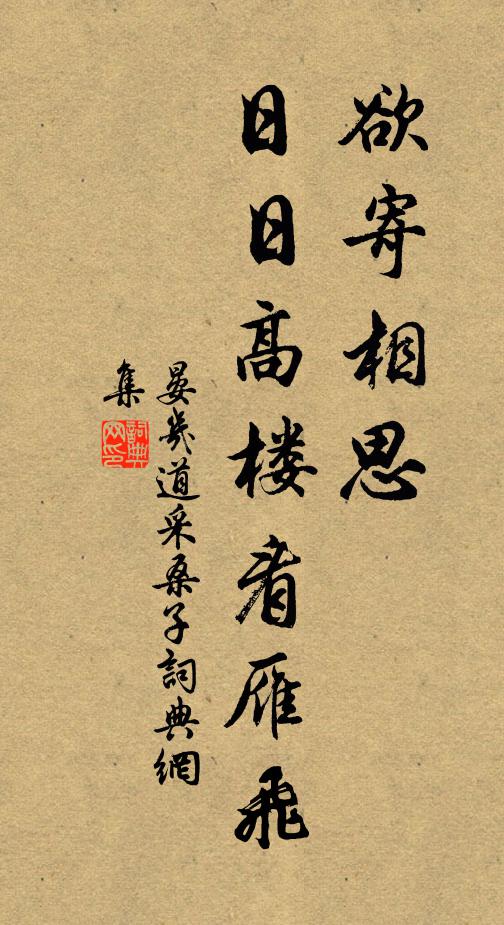 欲寄相思
日日高楼看雁飛
晏幾道采桑子詞典網
集
詞典网印